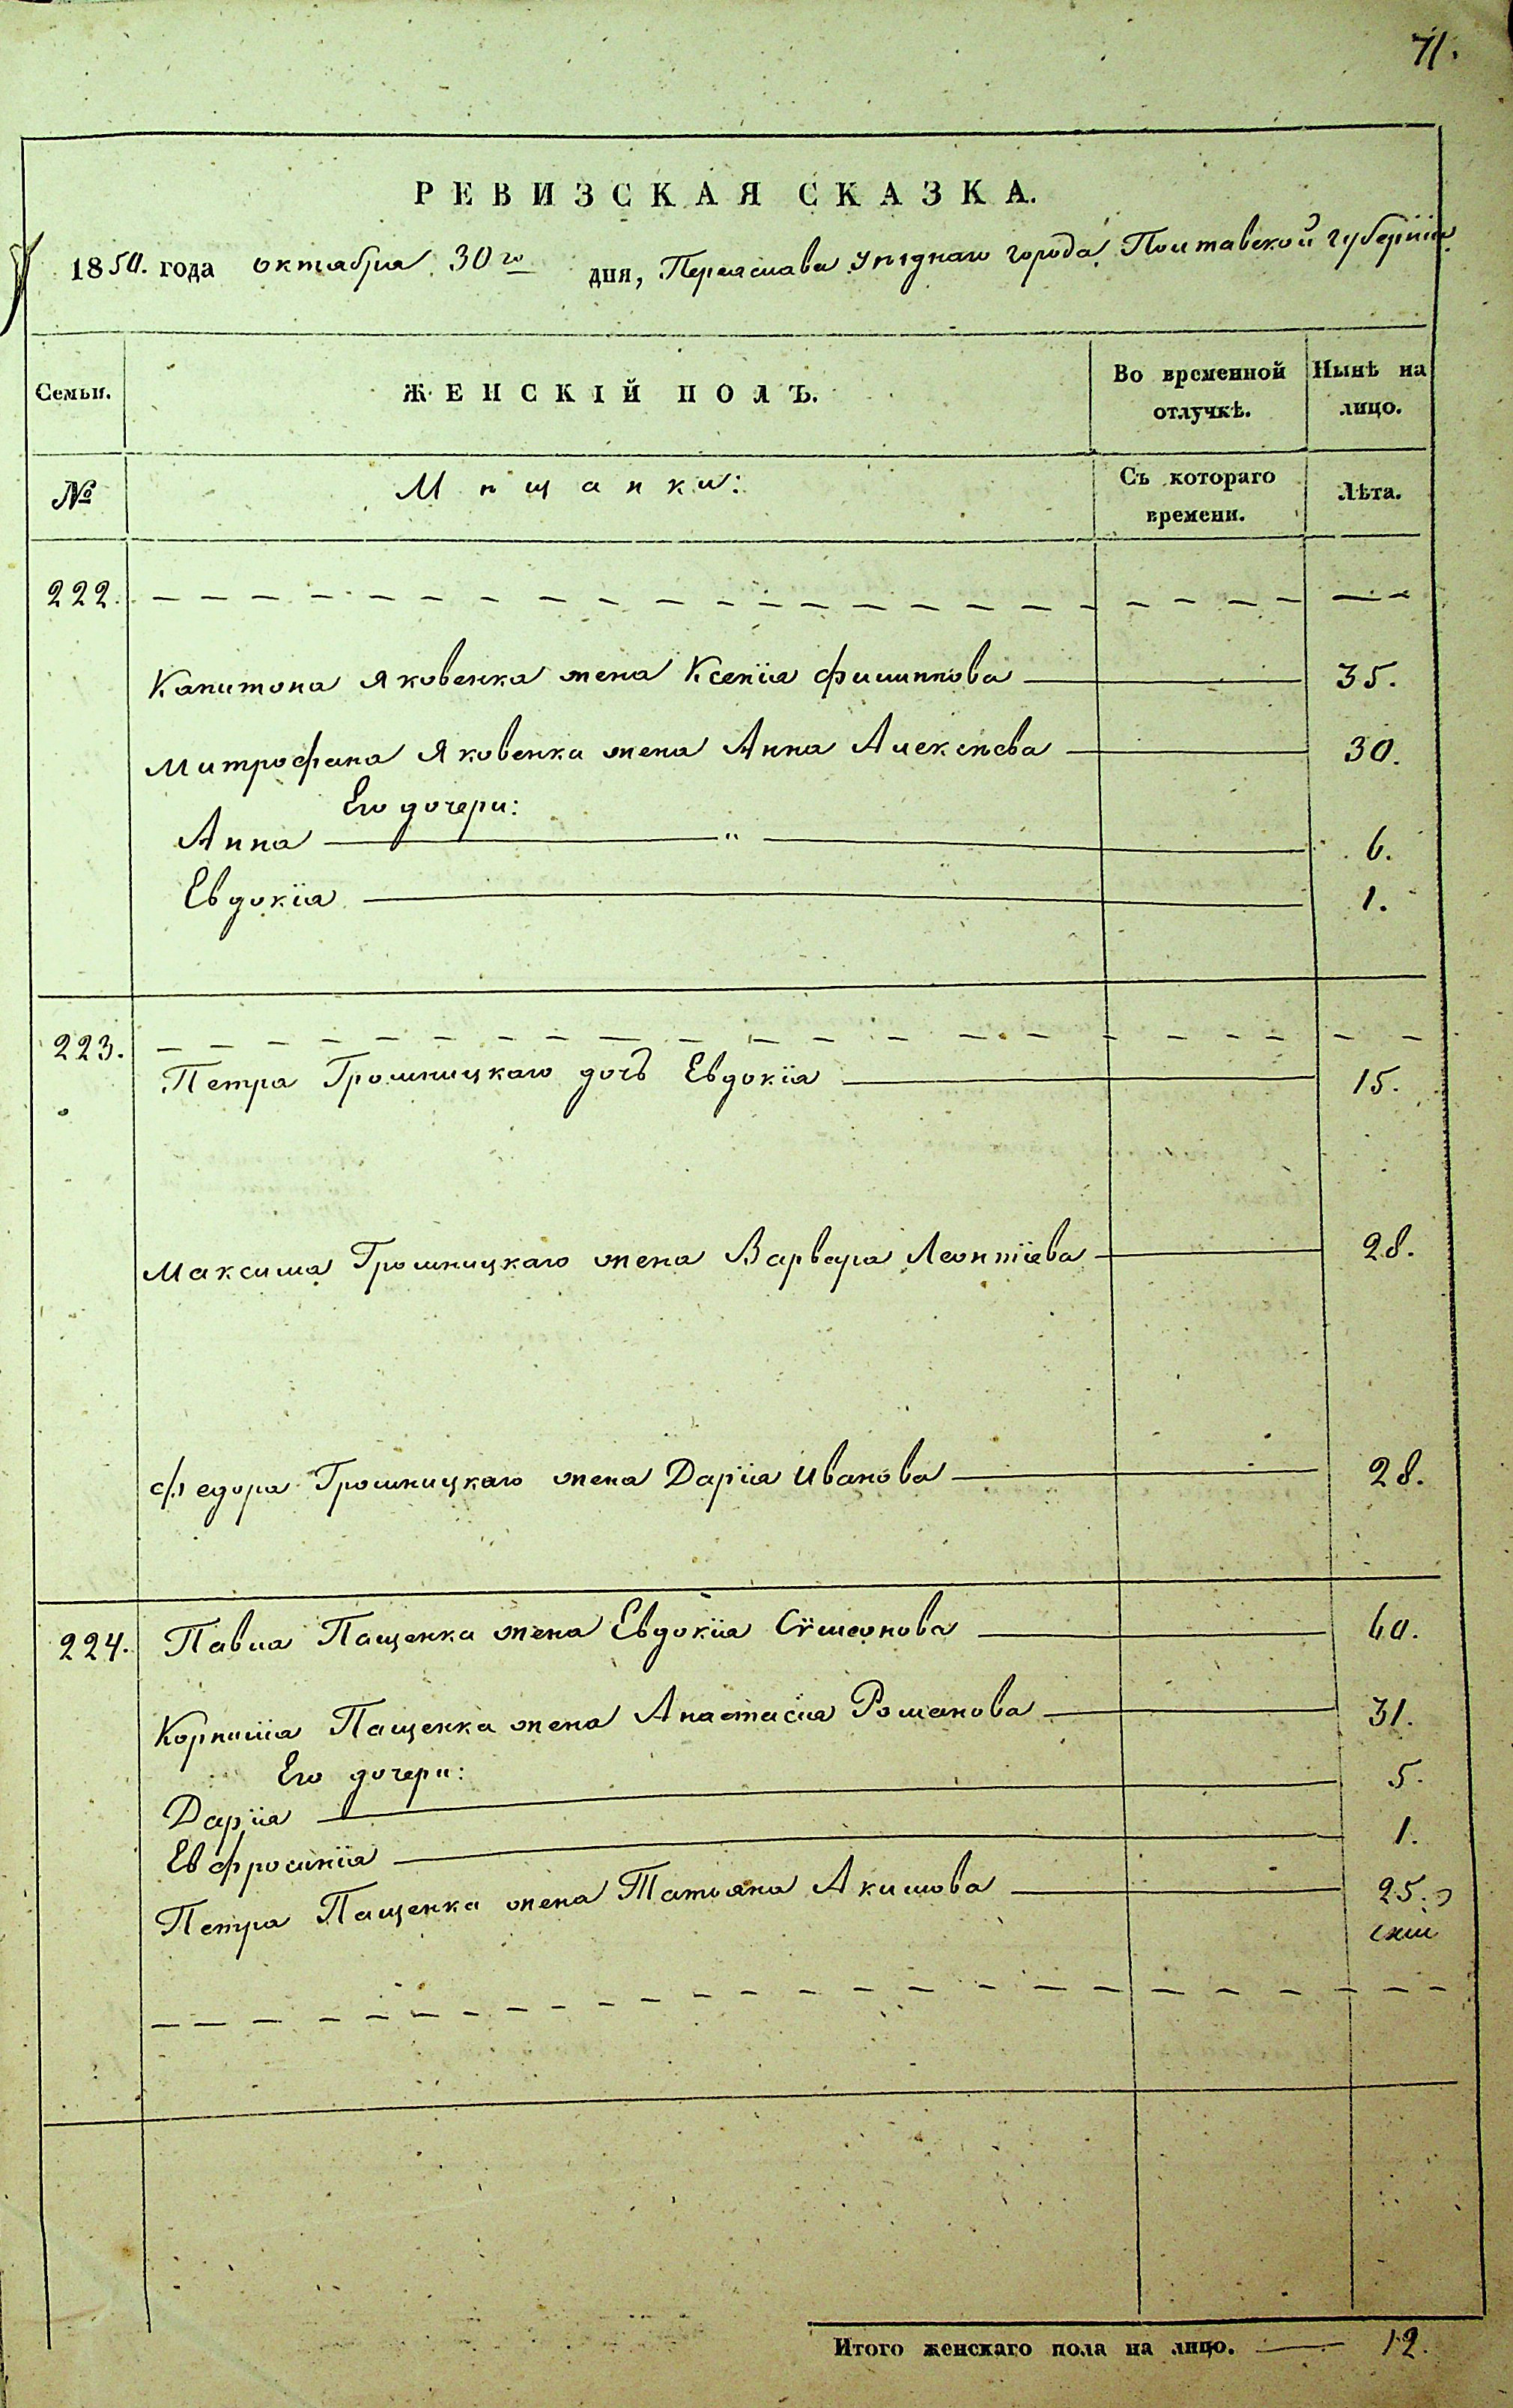 71.
РЕВИЗСКАЯ СКАЗКА.
1850. года октября 30го дня, Переяслава уѣзднаго города Полтавской губерніи
Семьи.
ЖЕНСКІЙ ПОЛЪ.
Во временной отлучкѣ.
Нынѣ на лицо.
№
Мѣщанки:
Съ котораго времени.
Лѣта.
222.
Капитона Яковенка жена Ксенія Филиппова 35.
Митрофана Яковенка жена Анна Алексѣева 30.
Его дочери:
Анна " 6.
Евдокія 1.
223.
Петра Громницкаго дочь Евдокія 15.
Максима Громницкаго жена Варвара Леонтіева 28.
Федора Громницкаго жена Дарія Иванова 28.
224. Павла Пащенка жена Евдокія Сѵмеонова 60.
Корнилія Пащенка жена Анастасія Романова 31.
Его дочери:
Дарія 5.
Евфросинія 1.
Петра Пащенка жена Татьяна Акимова 25.
Итого женскаго пола на лицо. 12.